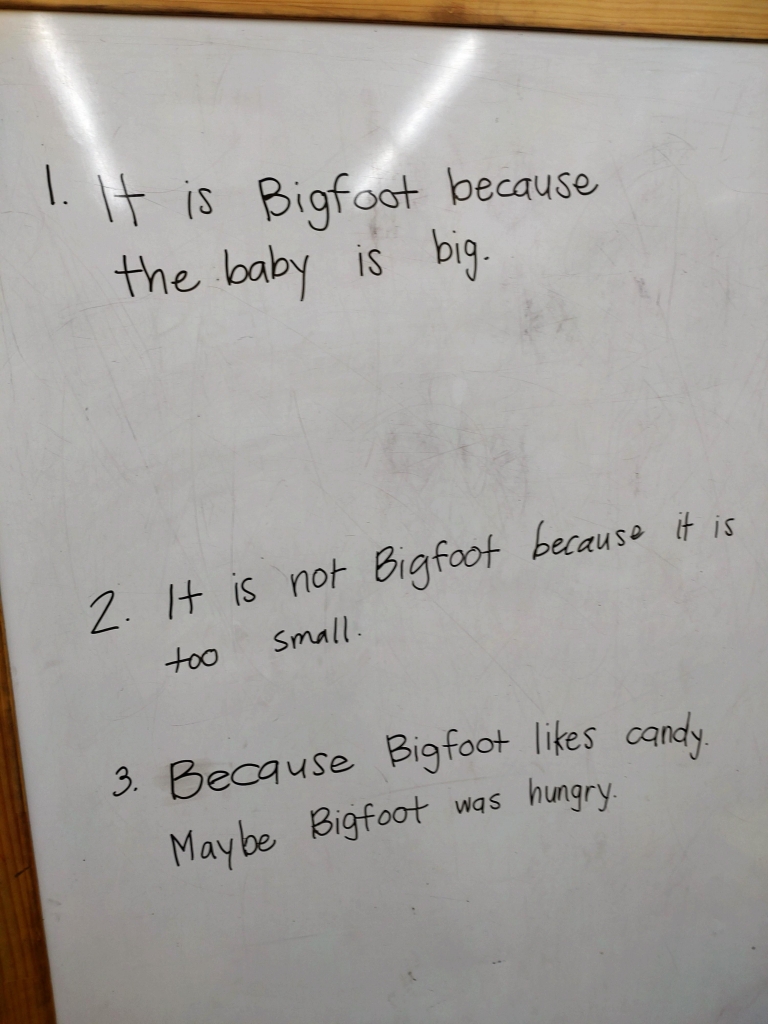 1. It is Bigfoot because
the baby is big.
2. It is not Bigfoot because it is
too small.
3. Because Bigfoot likes candy.
Maybe Bigfoot was hungry.